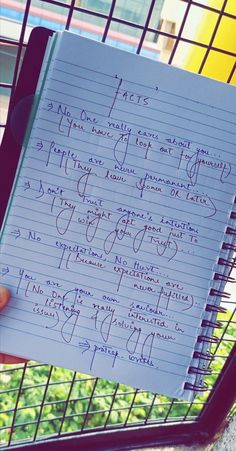 FACTS
⇒ No One really cares about you...
(You have to look out for yourself)
⇒ People are never permanent...
(They leave sooner OR later)
⇒ Don't trust anyone's intention
(They might act good just to
win your trust)...
⇒ No expectations, No Hurt...
(Because expectations are
never fulfilled)...
⇒ You are your own saviour...
(No One is really interested in
listening & solving your
issues)